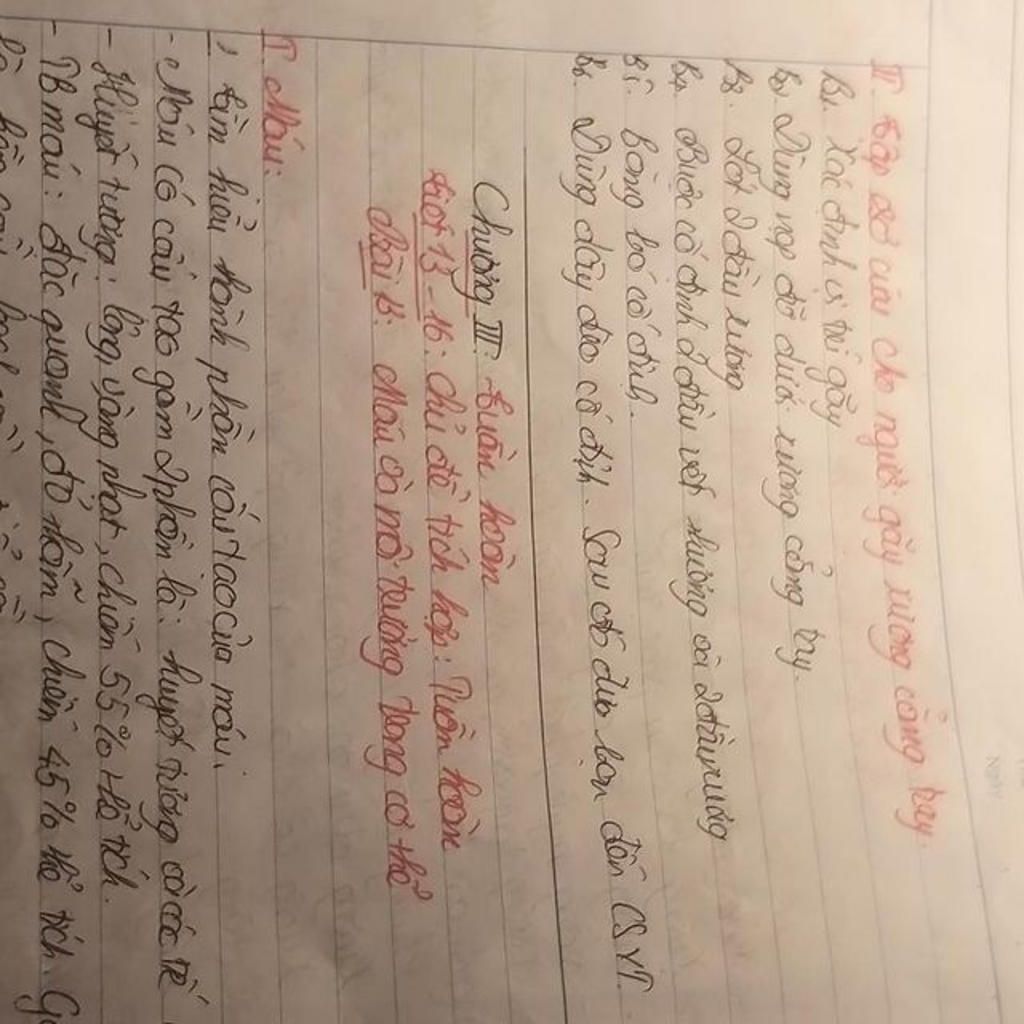 II. Tập sơ cứu cho người gãy xương cẳng tay.
B1. Xác định vị trí gãy
B2. Dùng nẹp đỡ dưới xương cẳng tay.
B3. Lót 2 đầu xương
B4. Buộc cố định 2 đầu nẹp xương và 2 đầu xương
B5. băng bó cố định.
B6. Dùng dây đeo cố định. Sau đó đưa bạn đến CSYT.
Chương III: tuần hoàn
tiết 13 - 16: chủ đề tích hợp: Tuần hoàn
Bài 13: Máu và môi trường trong cơ thể
I. Máu:
1, tìm hiểu thành phần cấu tạo của máu.
- Máu có cấu tạo gồm 2 phần là: huyết tương và các TB
- Huyết tương: lỏng, vàng nhạt, chiếm 55% thể tích.
- TB máu: đặc quánh, đỏ thẫm, chiếm 45% thể tích.